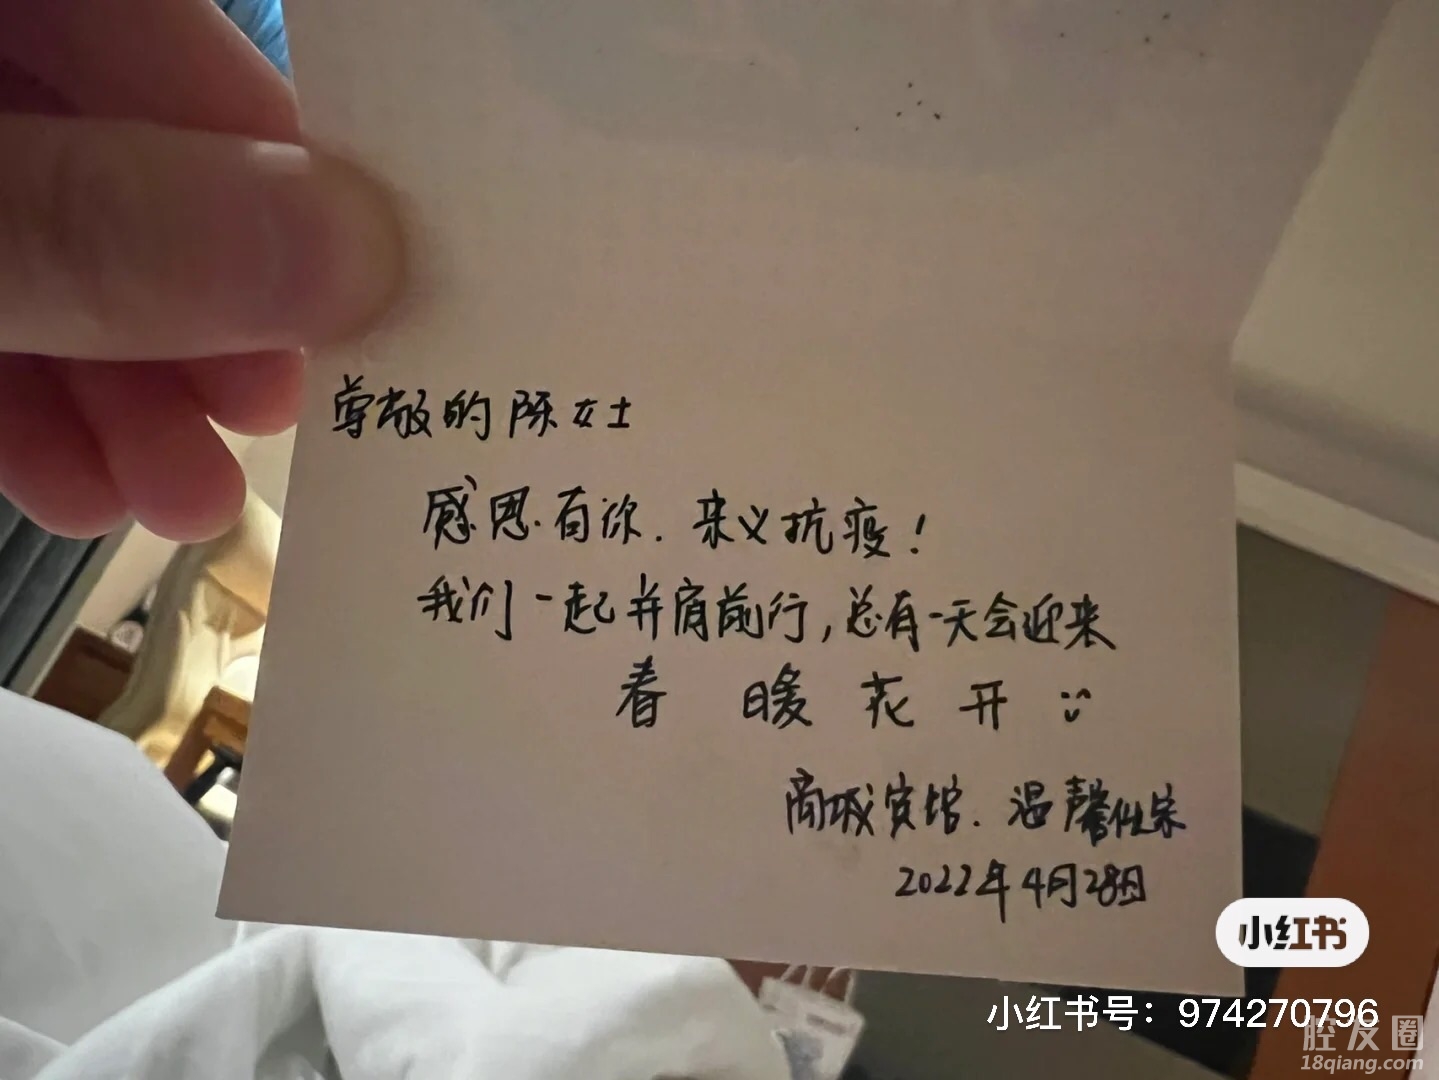 尊敬的陈女士
感恩有你.来义抗疫!
我们一起并肩前行,总有一天会迎来
春暖花开
商城宾馆.温馨
2022年4月28日
小红书
小红书号：974270796
腔友圈
18qiang.com